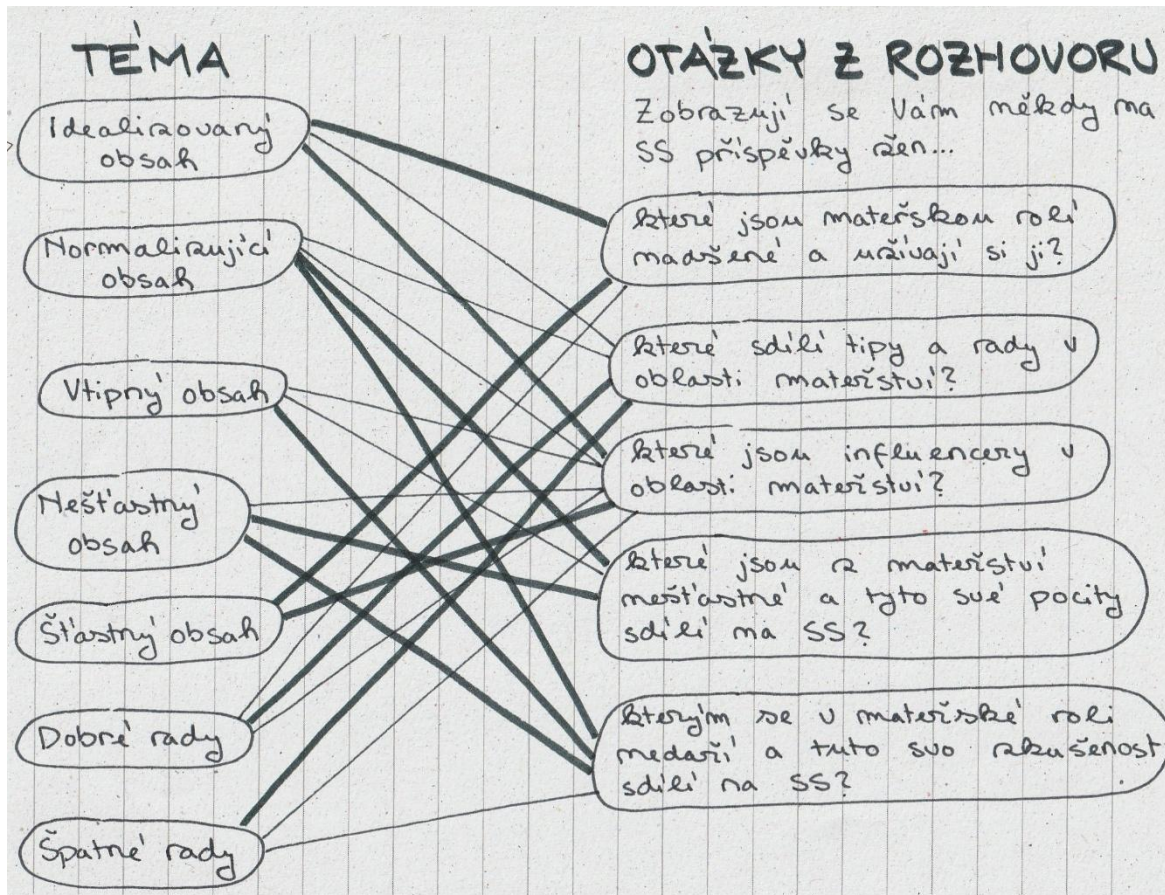 TÉMA
Idealizovaný
obsah
Normalizující
obsah
Vtipný obsah
Nešťastný
obsah
Šťastný obsah
Dobré rady
Špatné rady
OTÁZKY Z ROZHOVORU
Zobrazují se Vám někdy na
SS příspěvky žen...
které jsou mateřskou rolí
nadšené a užívají si ji?
které sdílí tipy a rady v
oblasti mateřství?
které jsou influencery v
oblasti mateřství?
které jsou z mateřství
nešťastné a tyto své pocity
sdílí na SS?
kterým se v mateřské roli
nedaří a tuto svo zkušenost
sdílí na SS?